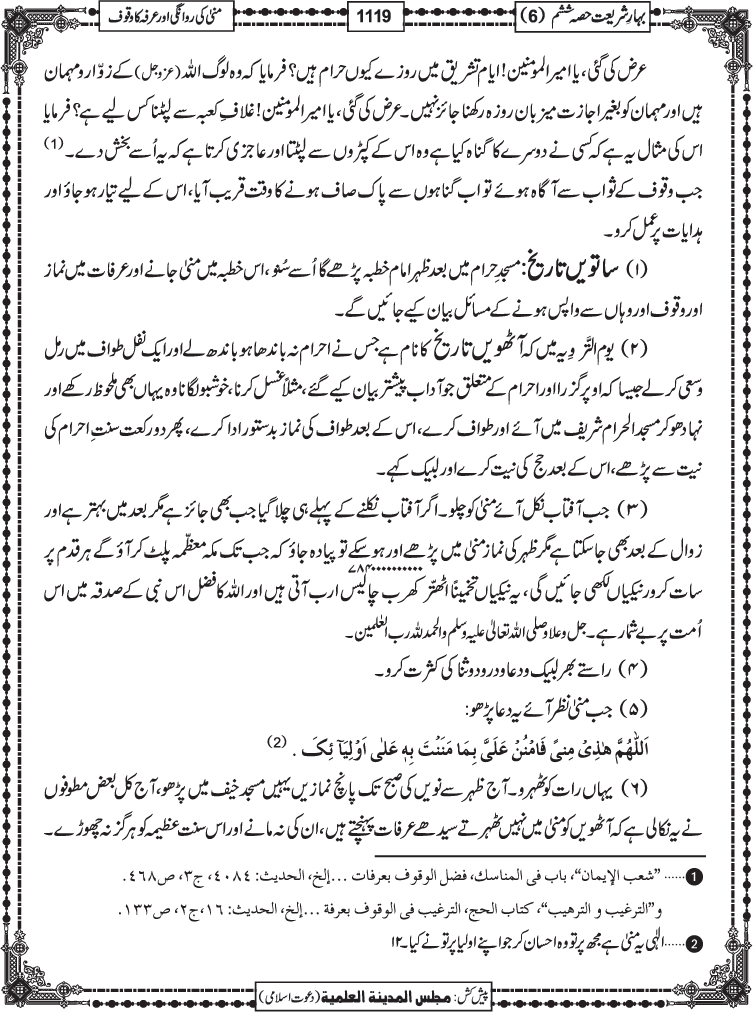 بہار شریعت حصہ ششم (6)
1119
منیٰ کی روانگی اور عرفہ کا وقوف
عرض کی گئی، یا امیر المومنین! ایام تشریق میں روزے کیوں حرام ہیں؟ فرمایا کہ وہ لوگ اللہ (عزوجل) کے زوّار و مہمان
ہیں اور مہمان کو بغیر اجازت میزبان روزہ رکھنا جائز نہیں۔ عرض کی گئی، یا امیر المومنین! غلافِ کعبہ سے لپٹنا کس لیے ہے؟ فرمایا
اس کی مثال یہ ہے کہ کسی نے دوسرے کا گناہ کیا ہے وہ اس کے کپڑوں سے لپٹتا اور عاجزی کرتا ہے کہ یہ اُسے بخش دے۔ (1)
جب وقوف کے ثواب سے آگاہ ہوئے تو اب گناہوں سے پاک صاف ہونے کا وقت قریب آیا، اس کے لیے تیار ہو جاؤ اور
ہدایات پر عمل کرو۔
(۱) ساتویں تاریخ: مسجدِ حرام میں بعد ظہر امام خطبہ پڑھے گا اُسے سُنو، اس خطبہ میں منیٰ جانے اور عرفات میں نماز
اور وقوف اور وہاں سے واپس ہونے کے مسائل بیان کیے جائیں گے۔
(۲) یوم التّرویہ میں کہ آٹھویں تاریخ کا نام ہے جس نے احرام نہ باندھا ہو باندھ لے اور ایک نفل طواف میں رمل
وسعی کر لے جیسا کہ اوپر گزرا اور احرام کے متعلق جو آداب پیشتر بیان کیے گئے، مثلاً غسل کرنا، خوشبو لگانا وہ یہاں بھی ملحوظ رکھے اور
نہا دھو کر مسجد الحرام شریف میں آئے اور طواف کرے، اس کے بعد طواف کی نماز بدستور ادا کرے، پھر دو رکعت سنتِ احرام کی
نیت سے پڑھے، اس کے بعد حج کی نیت کرے اور لبیک کہے۔
(۳) جب آفتاب نکل آئے منیٰ کو چلو۔ اگر آفتاب نکلنے کے پہلے ہی چلا گیا جب بھی جائز ہے مگر بعد میں بہتر ہے اور
زوال کے بعد بھی جا سکتا ہے مگر ظہر کی نماز منیٰ میں پڑھے اور ہو سکے تو پیادہ جاؤ کہ جب تک مکہ معظّمہ پلٹ کر آؤ گے ہر قدم پر
۷۸۴۰۰۰۰۰۰۰۰۰۰
سات کرور نیکیاں لکھی جائیں گی، یہ نیکیاں تخمینًا اٹھتّر کھرب چالیس ارب آتی ہیں اور اللہ کا فضل اس نبی کے صدقہ میں اس
اُمت پر بے شمار ہے۔ جل وعلا وصلی اللہ تعالیٰ علیہ وسلم والحمد للہ رب العٰلمین۔
(۴) راستے بھر لبیک و دعا و درود و ثنا کی کثرت کرو۔
(۵) جب منیٰ نظر آئے یہ دعا پڑھو:
اَللّٰهُمَّ هٰذِیْ مِنیً فَامْنُنْ عَلَیَّ بِمَا مَنَنْتَ بِهٖ عَلٰی اَوْلِیَآ ئِکَ . (2)
(۶) یہاں رات کو ٹھہرو۔ آج ظہر سے نویں کی صبح تک پانچ نمازیں یہیں مسجد خیف میں پڑھو، آج کل بعض مطوفوں
نے یہ نکالی ہے کہ آٹھویں کو منیٰ میں نہیں ٹھہرتے سیدھے عرفات پہنچتے ہیں، ان کی نہ مانے اور اس سنت عظیمہ کو ہرگز نہ چھوڑے۔
1 ...... "شعب الإیمان"، باب فی المناسك، فضل الوقوف بعرفات ...إلخ، الحدیث: ٤٠٨٤، ج٣، ص٤٦٨.
و"الترغیب و الترهیب"، کتاب الحج، الترغیب فی الوقوف بعرفة ...إلخ، الحدیث: ١٦، ج٢، ص١٣٣.
2 ...... الٰہی یہ منیٰ ہے مجھ پر تو وہ احسان کر جو اپنے اولیا پر تو نے کیا۔ ۱۲
پیش کش: مجلس المدینة العلمیة (دعوت اسلامی)